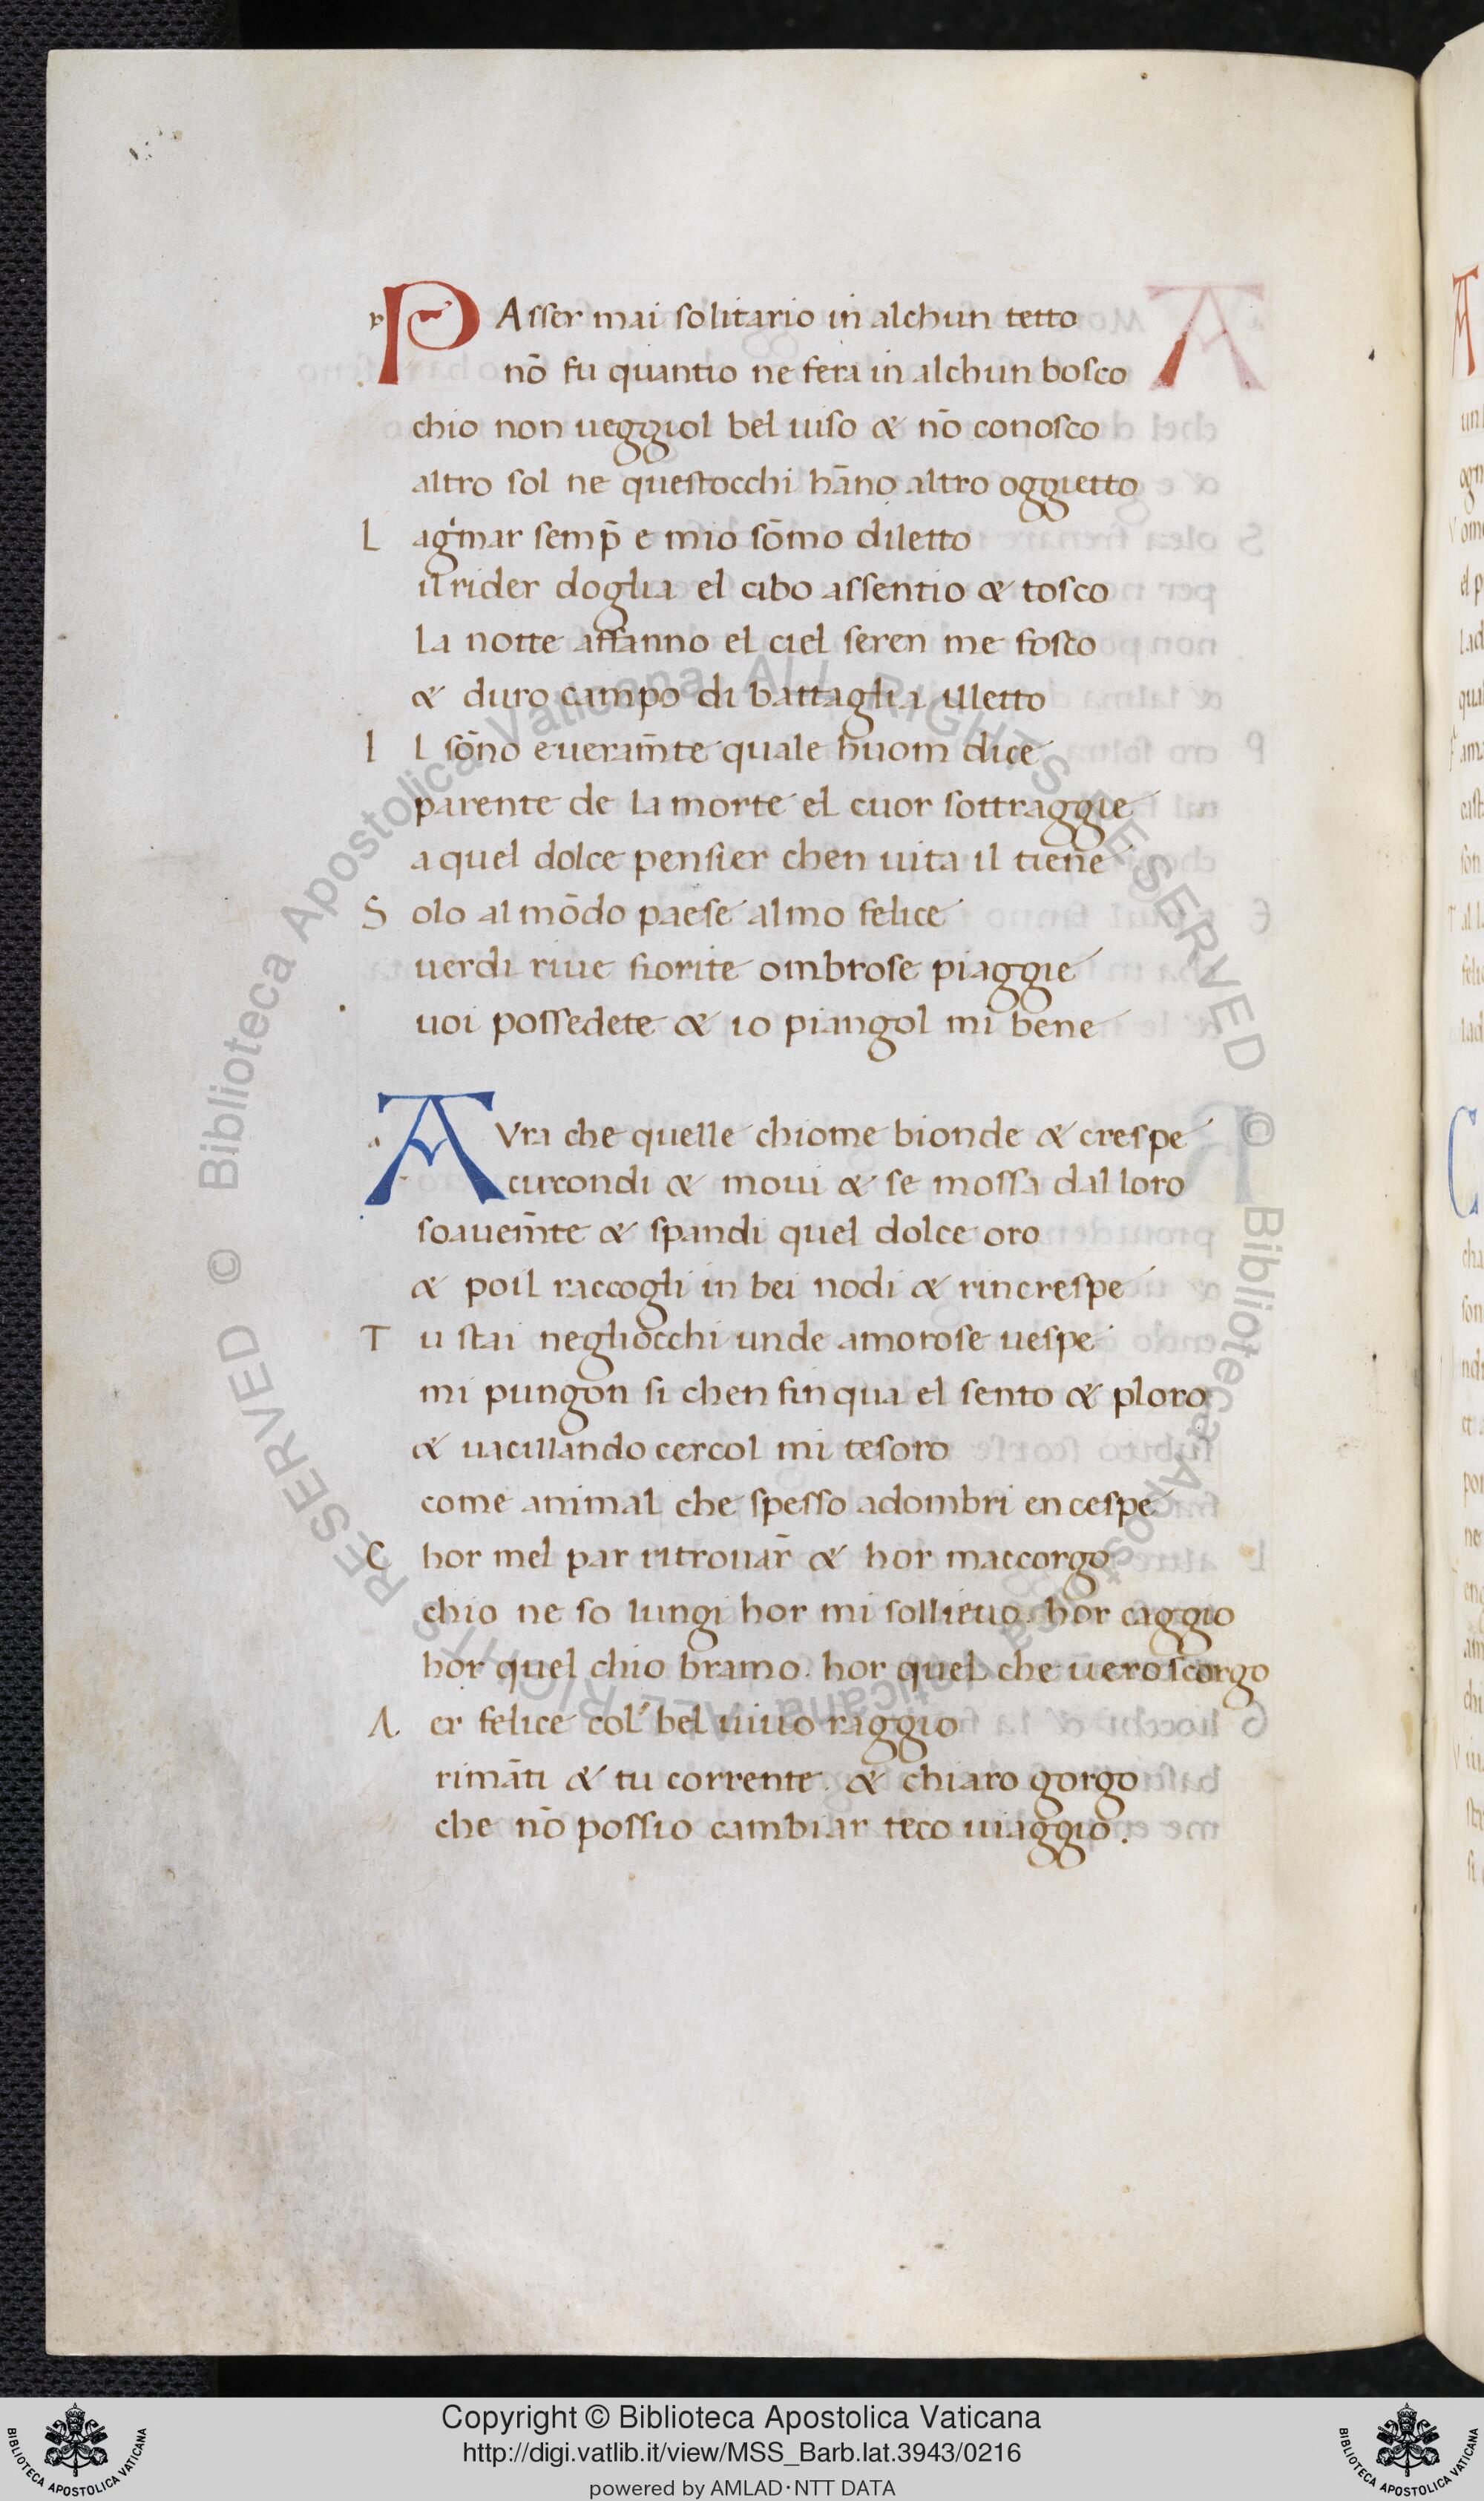 PAsser mai solitario in alchun tetto
nō fu quantio ne fera in alchun bosco
chio non ueggiol bel uiso & nō conosco
altro sol ne questocchi hāno altro oggietto
Lagͥmar semp̄ e mio sōmo diletto
il rider doglia el cibo assentio & tosco
la notte affanno el ciel seren me fosco
& duro campo di battaglia illetto
Il sōno e ueram̄te quale huom dice
parente de la morte el cuor sottraggie
a quel dolce pensier chen uita il tiene
Solo al mōdo paese almo felice
uerdi riue fiorite ombrose piaggie
uoi possedete & io piangol mi bene
AVra che quelle chiome bionde & crespe
circondi & moui & se mossa dal loro
soauem̄te & spandi quel dolce oro
& poil raccogli in bei nodi & rincrespe
Tu stai negliocchi unde amorose uespe
mi pungon si chen fin qua el sento & ploro
& uacillando cercol mi tesoro
come animal che spesso adombri en cespe
Chor mel par ritrouar̄ & hor maccorgo
chio ne so lungi hor mi sollieuo. hor caggio
hor quel chio bramo. hor quel che uero scorgo
Aer felice col bel uiuo raggio
rimāti & tu corrente. & chiaro gorgo
che nō possio cambiar teco uiaggio.
© Biblioteca Apostolica Vaticana ALL RIGHTS RESERVED © Biblioteca Apostolica Vaticana ALL RIGHTS RESERVED
BIBLIOTECA APOSTOLICA VATICANA
Copyright © Biblioteca Apostolica Vaticana
http://digi.vatlib.it/view/MSS_Barb.lat.3943/0216
powered by AMLAD·NTT DATA
BIBLIOTECA APOSTOLICA VATICANA